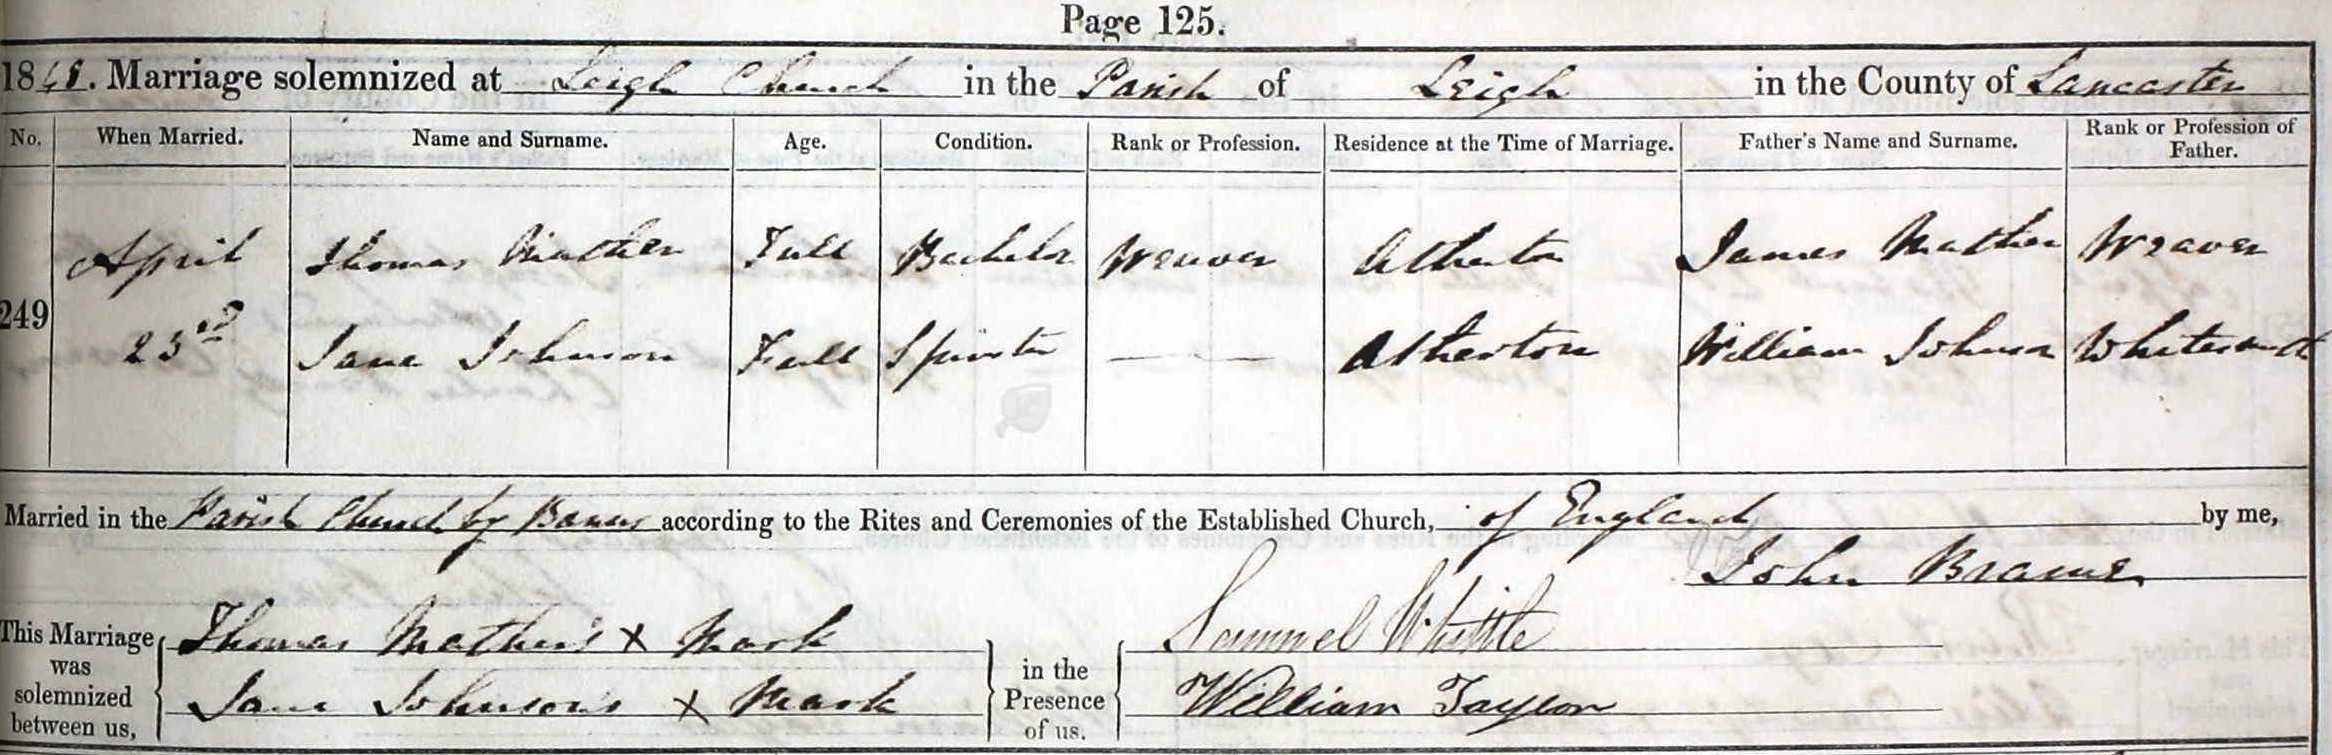 Page 125.
1848. Marriage solemnized at Leigh Church in the Parish of Leigh in the County of Lancaster
No. When Married. Name and Surname. Age. Condition. Rank or Profession. Residence at the Time of Marriage. Father's Name and Surname. Rank or Profession of Father.
April Thomas Mather Full Bachelor Weaver Atherton James Mather Weaver
249 23rd Jane Johnson Full Spinster Atherton William Johnson Whitesmith
Married in the Parish Church by Banns according to the Rites and Ceremonies of the Established Church, of England by me,
John
This Marriage was solemnized between us, Thomas Mather's x Mark in the Presence of us, Samuel Whittle
Jane Johnson's x Mark William Taylor